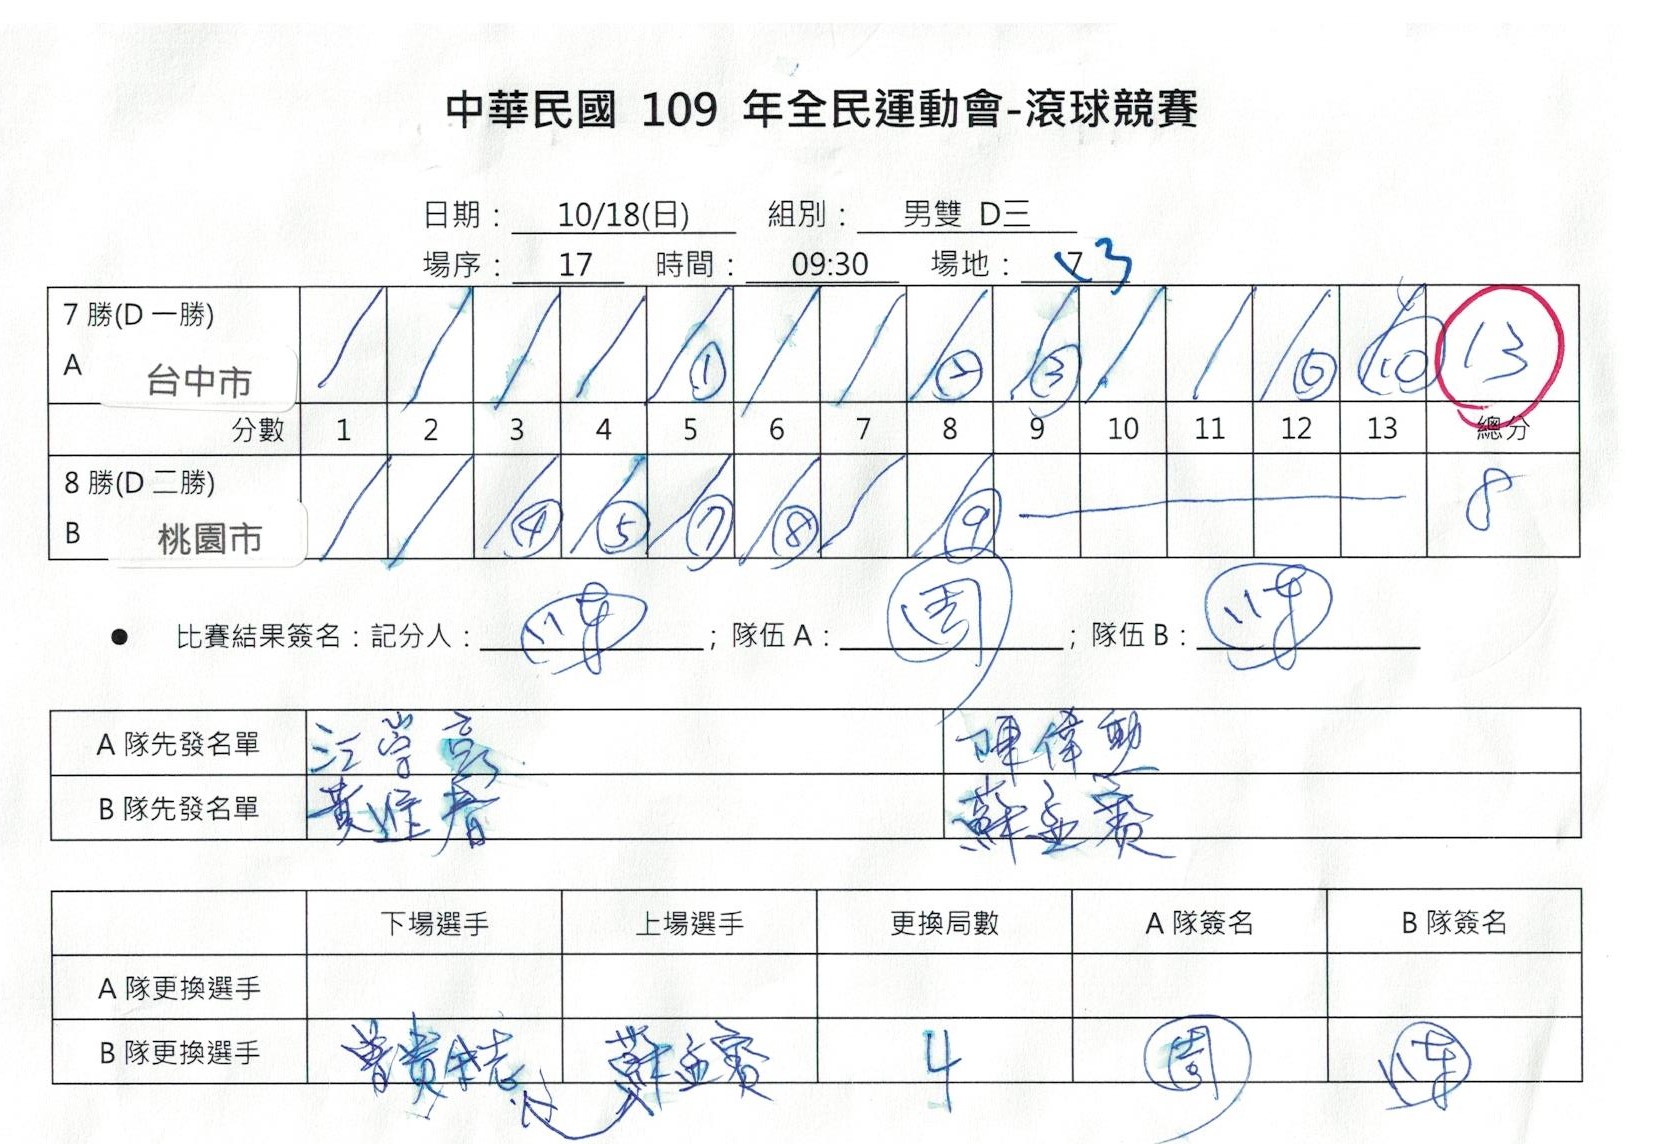 中華民國 109 年全民運動會-滾球競賽
日期： 10/18(日) 組別： 男雙 D三
場序： 17 時間： 09:30 場地： 7 3
7 勝(D 一勝)
A 台中市 ① ② ③ ⑥ ⑩ 13
分數 1 2 3 4 5 6 7 8 9 10 11 12 13 總分
8 勝(D 二勝)
B 桃園市 ④ ⑤ ⑦ ⑧ ⑨ 8
● 比賽結果簽名：記分人： ；隊伍 A： 周 ；隊伍 B：
A 隊先發名單 陳偉勳
B 隊先發名單 黃 蘇孟賽
下場選手 上場選手 更換局數 A 隊簽名 B 隊簽名
A 隊更換選手
B 隊更換選手 曾貴 志 蘇孟賽 4 周